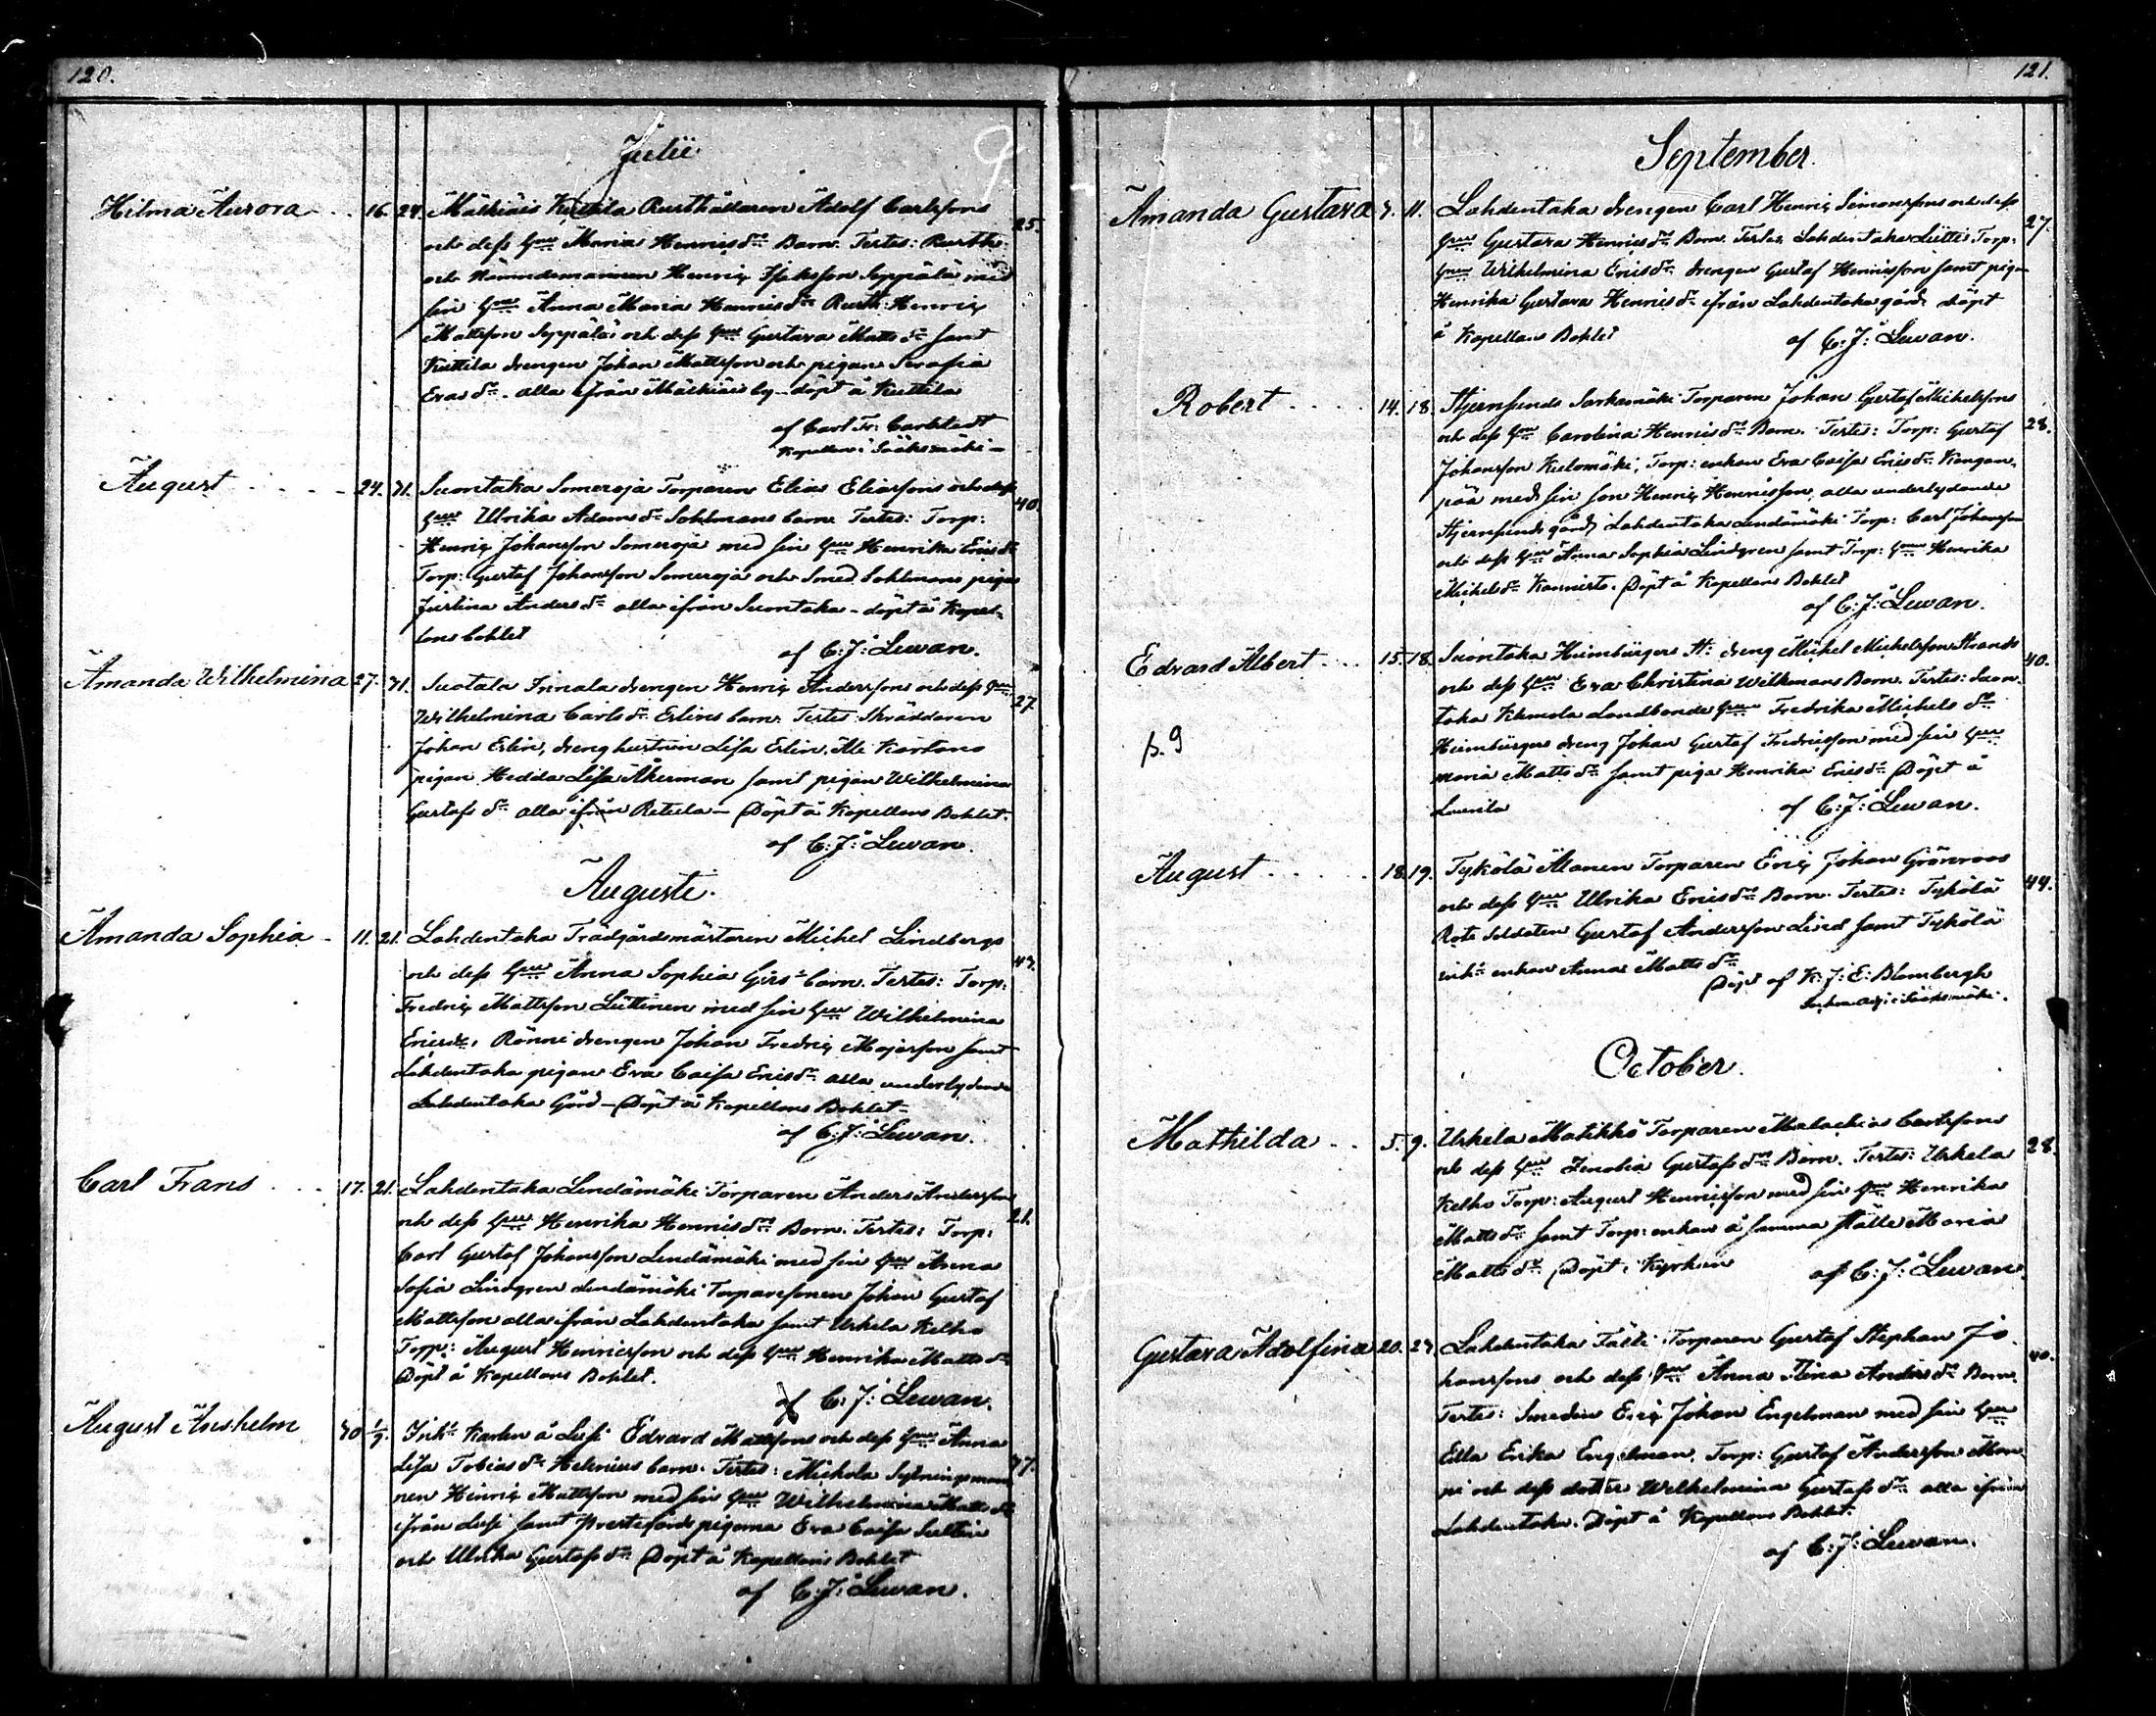 120.
Julii
Hilma Aurora .. 16. 24. Mälkiäis Kuttila Rusthållaren Adolf Carlssons
och dess hu Maria Henricsdr Barn. Testes: Rusth: 25.
och Nämndemannen Henric Isaksson Seppälä med
sin hu Anna Maria Henricsdr Rusth: Henric
Mattsson Seppälä och dess hu Gustava Mattsdr samt
Kuttila drengen Johan Mattsson och pigan Serafia
Evasdr. alla ifrån Mälkiäis by – döpt å Kuttila
af Carl Fr: Carlstedt
Kapellan i Sääksmäki –
August . . . . 24. 31. Suontaka Someroja Torparen Elias Eliassons och dess
hu Ulrika Adamsdr Sohlmans barn. Testes: Torp: 40.
Henric Johansson Someroja med sin hu Henrika Ericsdr
Torp: Gustaf Johansson Someroja och Smed Sohlmans pigan
Justina Andersdr alla ifrån Suontaka – döpt å Kapel-
lans bohlet
af C: J: Lewan.
Amanda Wilhelmina 27. 31. Suotala Innala drengen Henric Anderssons och dess hu
Wilhelmina Carlsdr Erlins barn. Testes: Skräddaren 27.
Johan Erlin, drenghustrun Lisa Erlin,
pigan Hedda Lisa Åkerman samt pigan Wilhelmina
Gustafsdr alla ifrån Retula – Döpt å Kapellans Bohlet.
af C: J: Lewan.
Augusti.
Amanda Sophia – 11. 21. Lahdentaka Trädgårdsmästaren Michel Lindbergs
och dess hu Anna Sophia barn. Testes: Torp: 43.
Fredric Mattsson Luttinen med sin hu Wilhelmina
Ericsdr, Rönni drengen Johan Fredric Majasson samt
Lahdentaka pigan Eva Caisa Ericsdr alla underlydande
Lahdentaka Gård – Döpt å Kapellans Bohlet –
af C: J: Lewan.
Carl Frans . . . 17. 21. Lahdentaka Lendämäki Torparen Anders Anderssons
och dess hu Henrika Henricsdr Barn. Testes: Torp: 21.
Carl Gustaf Johansson Lendämäki med sin hu Anna
Sofia Lindgren Lendämäki Torparesonen Johan Gustaf
Mattsson alla ifrån Lahdentaka samt Uskela Kelho
Torp: August Henricsson och dess hu Henrika Mattsdr
Döpt å Kapellans Bohlet.
af C: J: Lewan.
August Anshelm 30 1/9. Inh: Karlen å Edvard Mattssons och dess hu Anna
Lisa Tobiasdr Helenius barn. Testes: Mickola Sytningsman- 37.
nen Henric Mattsson med sin hu Wilhelmina Mattsdr
ifrån samt pigorna Eva Caisa
och Ulrika Gustafsdr Döpt å Kapellans Bohlet
af C: J: Lewan.
121.
September.
Amanda Gustava 3. 11. Lahdentaka drengen Carl Henric Simonssons och dess
hu Gustava Henricsdr Barn. Testes, Lahdentaka Luttis Torp: 27.
hu Wilhelmina Ericsdr drengen Gustaf Henricsson samt pigan
Henrika Gustava Henricsdr ifrån Lahdentaka gård. döpt
å Kapellans Bohlet
af C: J: Lewan.
Robert . . . . 14. 18. Stjernsunds Sarkamäki Torparen Johan Gustaf Michelssons
och dess hu Carolina Henricsdr Barn. Testes: Torp: Gustaf 28.
Johansson Kulomäki, Torp: enkan Eva Caisa Ericsdr Kangan-
pää med sin son Henric Henricsson, alla underlydande
Stjernsunds gård, Lahdentaka Lendämäki Torp: Carl Johansson
och dess hu Anna Sophia Lindgren samt Torp: hu Henrika
Michelsdr Kannisto. Döpt å Kapellans Bohlet
af C: J: Lewan.
Edvard Albert . . . 15. 18. Suontaka Heimbürgers St: dreng Michel Michelsson Strands
och dess hu Eva Christina Wilkmans Barn. Testes: Suon- 40.
taka Kemola Landbonde hu Fredrika Michelsdr
Heimbürgers dreng Johan Gustaf Fredricsson med sin hu
Maria Mattsdr samt piga Henrika Ericsdr Döpt å
Laurila
af C: J: Lewan.
p. 9
August . . . . . 18. 19. Tykölä Alanen Torparen Eric Johan Grönroos
och dess hu Ulrika Ericsdr Barn. Testes: Tykölä 44.
Rote Soldaten Gustaf Andersson Lind samt Tykölä
inh: enkan Anna Mattsdr
Döpt af K: J: E: Blombergh
Sockne adj: i Sääksmäki.
October.
Mathilda . . 5. 9. Uskela Matikko Torparen Malachias Carlssons
och dess hu Zenobia Gustafsdr Barn. Testes: Uskela 28.
Kelho Torp: August Henricsson med sin hu Henrika
Mattsdr samt Torp: enkan å samma ställe Maria
Mattsdr. Döpt i Kyrkan
af C: J: Lewan.
Gustava Adolfina 20. 23. Lahdentaka Tälli Torparen Gustaf Stephan Jo-
hanssons och dess hu Anna Stina Andersdr Barn. 40.
Testes: Smeden Eric Johan Engelman med sin hu
Ulla Erika Engelman, Torp: Gustaf Andersson Mon-
ni och dess dotter Wilhelmina Gustafsdr alla ifrån
Lahdentaka. Döpt å Kapellans Bohlet.
af C: J: Lewan.